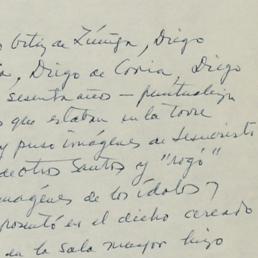 Ortiz de Zúñiga, Diego
Diego de Coria, Diego
sesenta años — puntualiza
que estaban en la torre
y puso imágenes de Jesucristo
de otros Santos y "rogó"
imágenes de los ídolos y
presentó es el dicho cercado
en la sala mayor hizo